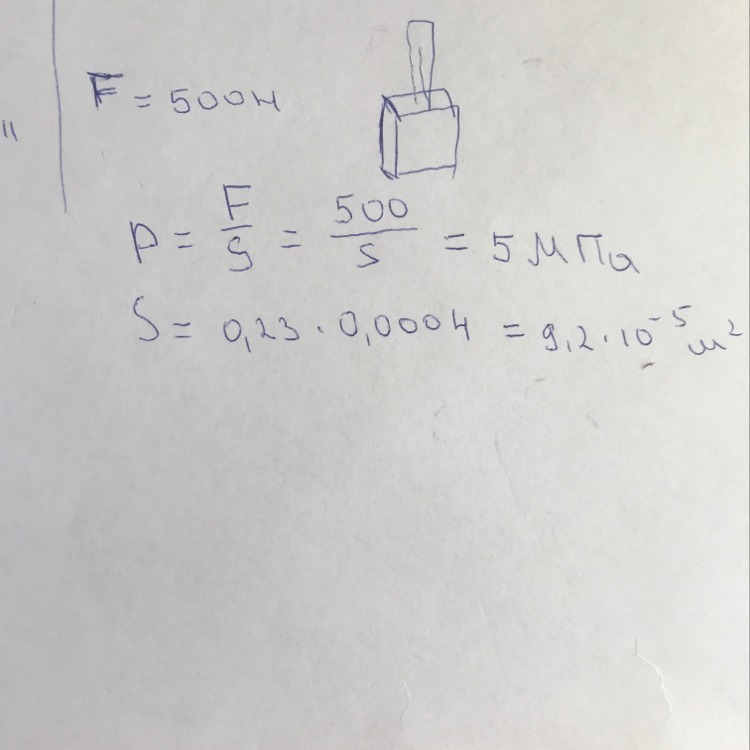 "
F = 500н
p = F/S = 500/S = 5 МПа
S = 0,23 · 0,0004 = 9,2 · 10⁻⁵ м²